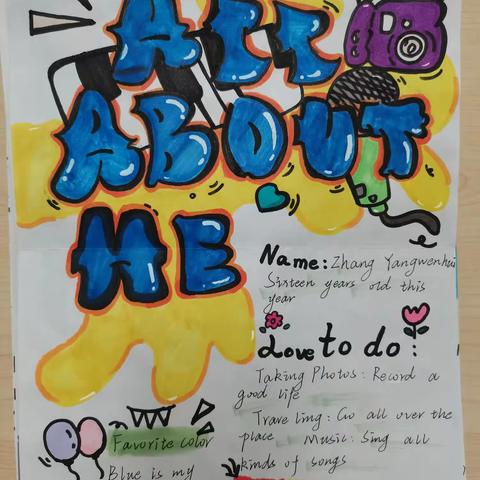 ALL
ABOUT
ME
Name: Zhang Yangwenhui
Sixteen years old this
year
Love to do:
Taking Photos: Record a
good life
Traveling: Go all over the
place Music: Sing all
kinds of songs
Favorite color
Blue is my